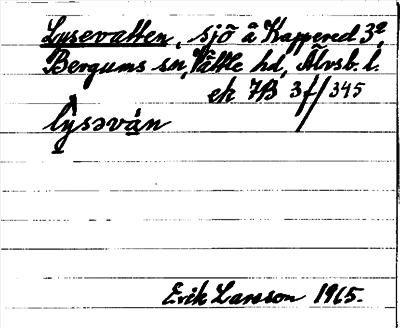 Lysevatten, sjö å Kappered 3ª,
Bergums sn, Vättle hd, Älvsb. l.
ek 7B 3f/345
lỳsəván
Erik Larsson 1965.